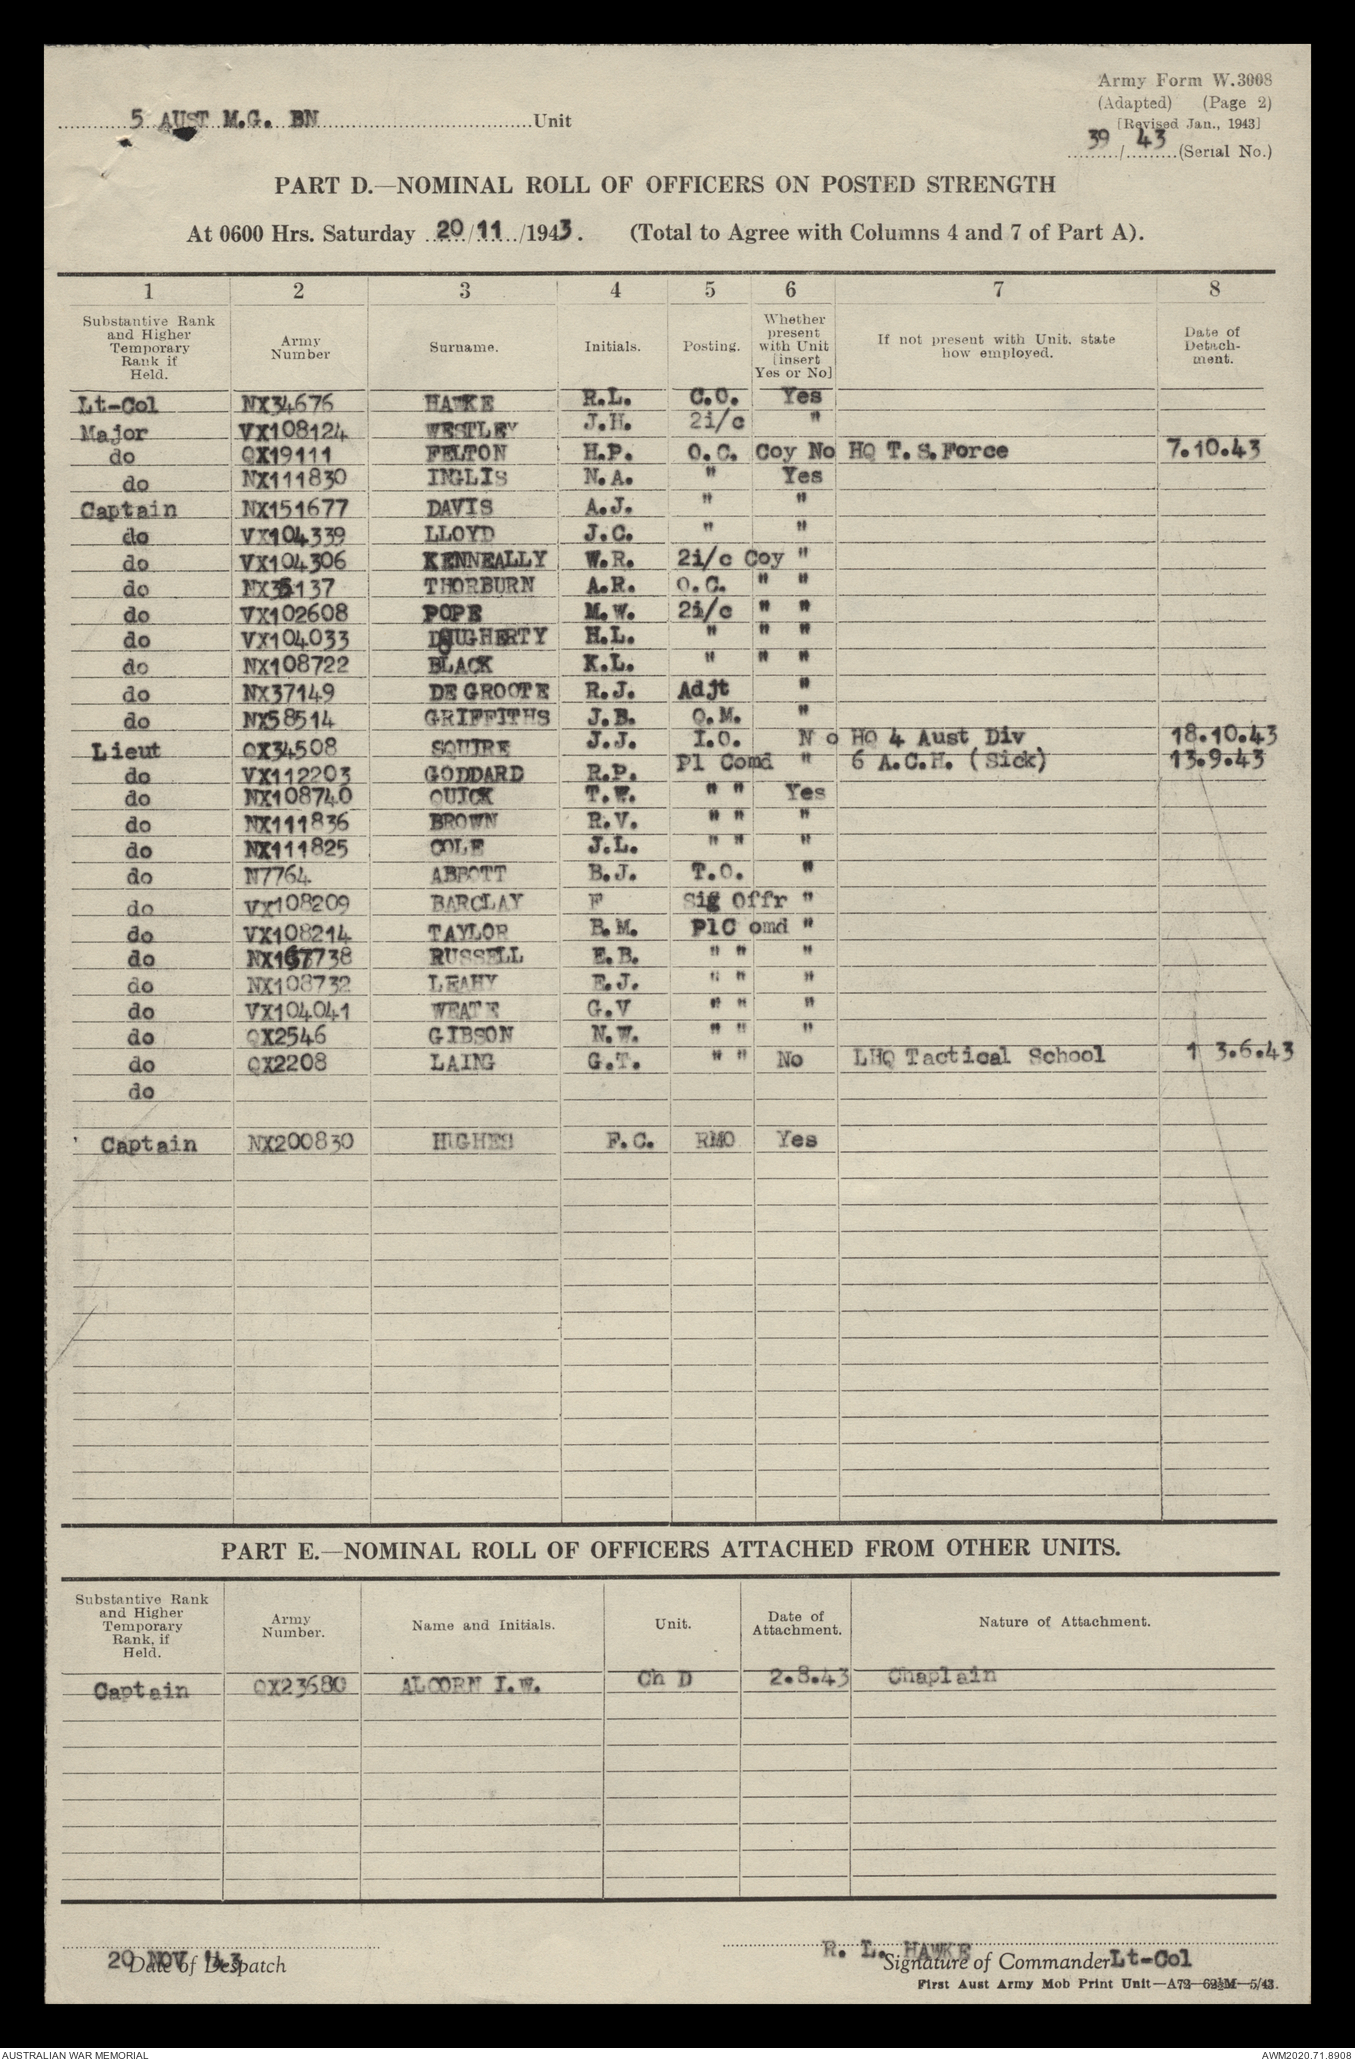 Army Form W.3008
(Adapted) (Page 2)
[Revised Jan., 1943]
5 AUST M.G. BN Unit
39 / 43 (Serial No.)
PART D.—NOMINAL ROLL OF OFFICERS ON POSTED STRENGTH
At 0600 Hrs. Saturday 20/11/1943. (Total to Agree with Columns 4 and 7 of Part A).
1 2 3 4 5 6 7 8
Substantive Rank and Higher Temporary Rank if Held. Army Number Surname. Initials. Posting. Whether present with Unit [insert Yes or No] If not present with Unit, state how employed. Date of Detachment.
Lt-Col NX34676 HAWKE R.L. C.O. Yes
Major VX108124 WESTLEY J.H. 2i/c "
do QX19111 FELTON H.P. O.C. Coy No HQ T.S.Force 7.10.43
do NX111830 INGLIS N.A. " Yes
Captain NX151677 DAVIS A.J. " "
do VX104339 LLOYD J.C. " "
do VX104306 KENNEALLY W.R. 2i/c Coy "
do THORBURN A.R. O.C. " "
do VX102608 POPE M.W. 2i/c " "
do VX104033 DOUGHERTY H.L. " " "
do NX108722 BLACK K.L. " " "
do NX37149 DE GROOTE R.J. Adjt "
do NX58514 GRIFFITHS J.B. Q.M. "
Lieut QX34508 SQUIRE J.J. I.O. N o HQ 4 Aust Div 18.10.43
do VX112203 GODDARD R.P. Pl Comd " 6 A.C.H. (Sick) 13.9.43
do NX108740 QUICK T.W. " " Yes
do NX111836 BROWN R.V. " " "
do NX111825 COLE J.L. " " "
do N7764 ABBOTT B.J. T.O. "
do VX108209 BARCLAY F Sig Offr "
do VX108214 TAYLOR B.M. PlC omd "
do NX167738 RUSSELL E.B. " " "
do NX108732 LEAHY E.J. " " "
do VX104041 WEATE G.V " " "
do QX2546 GIBSON N.W. " " "
do QX2208 LAING G.T. " " No LHQ Tactical School 1 3.6.43
do
Captain NX200830 HUGHES F.C. RMO Yes
PART E.—NOMINAL ROLL OF OFFICERS ATTACHED FROM OTHER UNITS.
Substantive Rank and Higher Temporary Rank, if Held. Army Number. Name and Initials. Unit. Date of Attachment. Nature of Attachment.
Captain QX23680 ALCORN I.W. Ch D 2.8.43 Chaplain
20 NOV '43 R. L. HAWKE Lt-Col
Date of Despatch Signature of Commander
First Aust Army Mob Print Unit—A72—62½M—5/43.
AUSTRALIAN WAR MEMORIAL AWM2020.71.8908